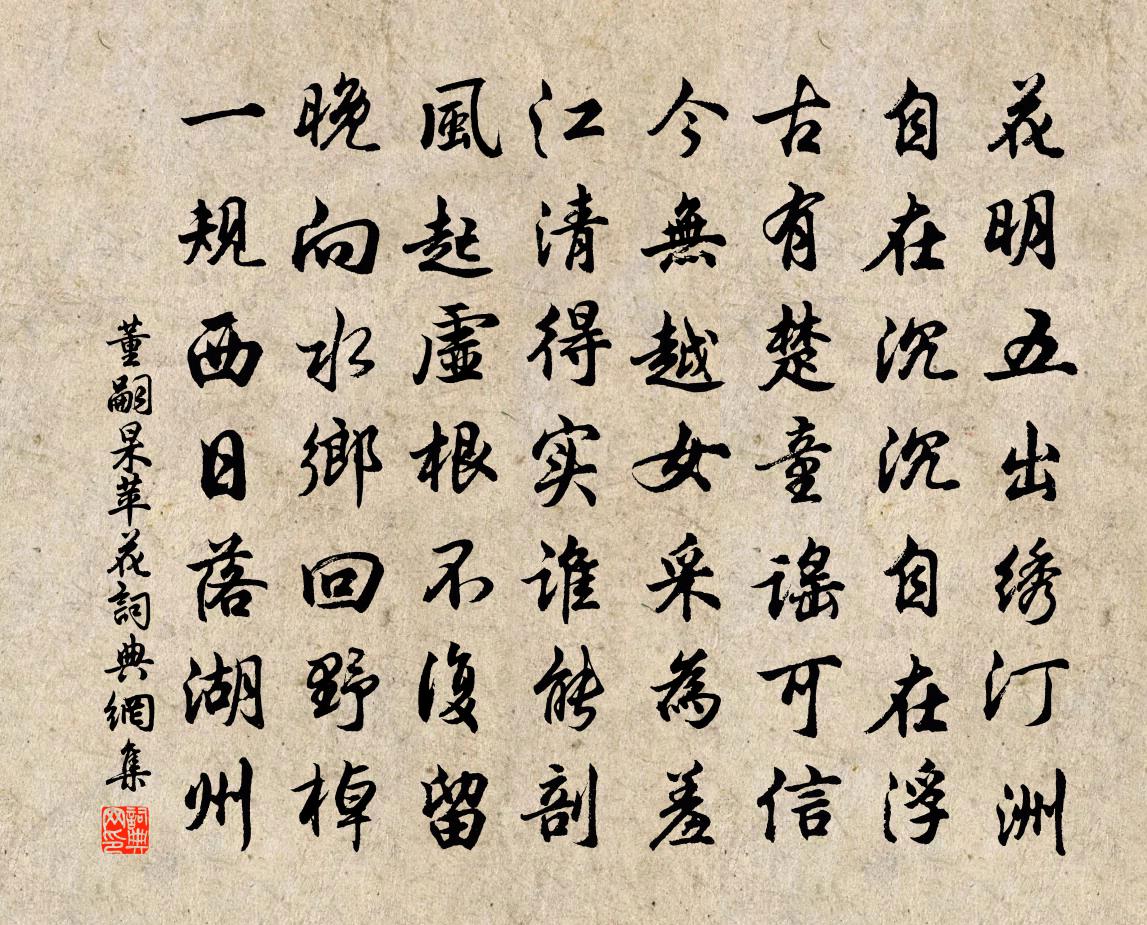 花明五出绣汀洲
自在沉沉自在浮
古有楚童謠可信
今無越女采為羞
江清得实誰能剖
風起虛根不復留
晚向水鄉回野棹
一規西日落湖州
董嗣杲苹花詞典網集
詞典网印